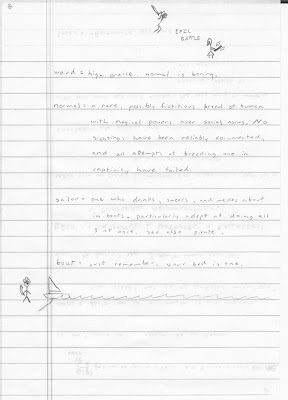 8
EPIC
BATTLE
weird = high praise. normal is boring.
normal = a rare, possibly fictitious breed of human
with magical powers over social norms. No
sightings have been reliably documented,
and all attempts at breeding one in
captivity have failed.
sailor = one who drinks, swears, and messes about
in boats. particularly adept at doing all
3 at once. see also pirate.
boat = just remember, your bed is one.